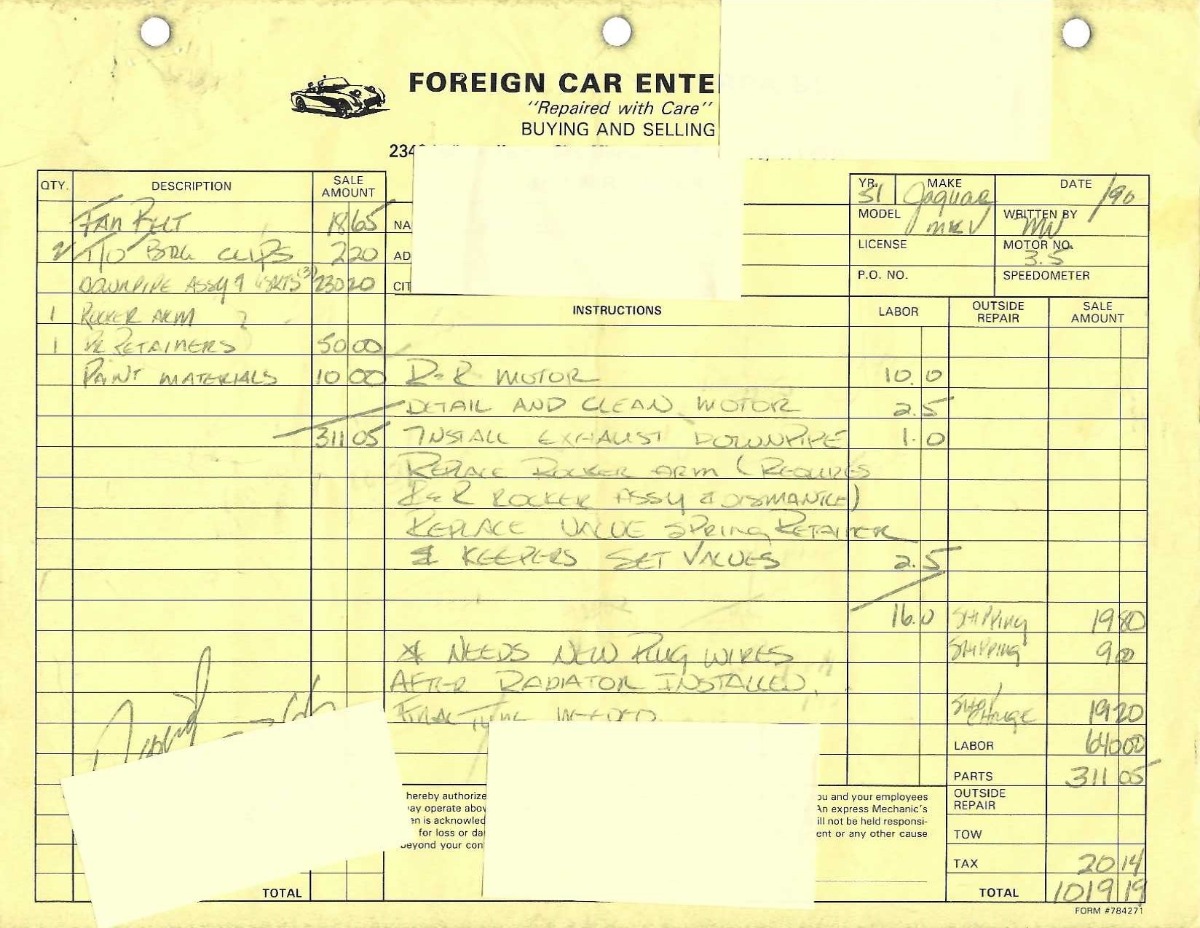 FOREIGN CAR ENTE
"Repaired with Care"
BUYING AND SELLING
234
QTY. DESCRIPTION SALE AMOUNT
FAN BELT 18 65
2 T/O BRG CLIPS 2 20
DOWNPIPE ASSY (3) 230 20
1 ROCKER ARM ?
1 PR RETAINERS 50 00
PAINT MATERIALS 10 00
311 05
TOTAL
NA
AD
CIT
YR. 51 MAKE Jaguar DATE /90
MODEL MK V WRITTEN BY MW
LICENSE MOTOR NO. 3.5
P.O. NO. SPEEDOMETER
INSTRUCTIONS LABOR OUTSIDE REPAIR SALE AMOUNT
R&R MOTOR 10.0
DETAIL AND CLEAN MOTOR 2.5
INSTALL EXHAUST DOWNPIPE 1.0
REPLACE ROCKER ARM (REQUIRES
R&R ROCKER ASSY & DISMANTLE)
REPLACE VALVE SPRING RETAINER
& KEEPERS SET VALVES 2.5
16.0 SHIPPING 19 80
* NEEDS NEW PLUG WIRES SHIPPING 9 00
AFTER RADIATOR INSTALLED,
FINAL TUNE NEEDED SHOP CHARGE 19 20
LABOR 640 00
PARTS 311 05
OUTSIDE REPAIR
TOW
TAX 20 14
TOTAL 1019 19
hereby authorize
ay operate abov
en is acknowled
for loss or da
beyond your con
ou and your employees
An express Mechanic's
ill not be held responsi-
ent or any other cause
FORM #784271